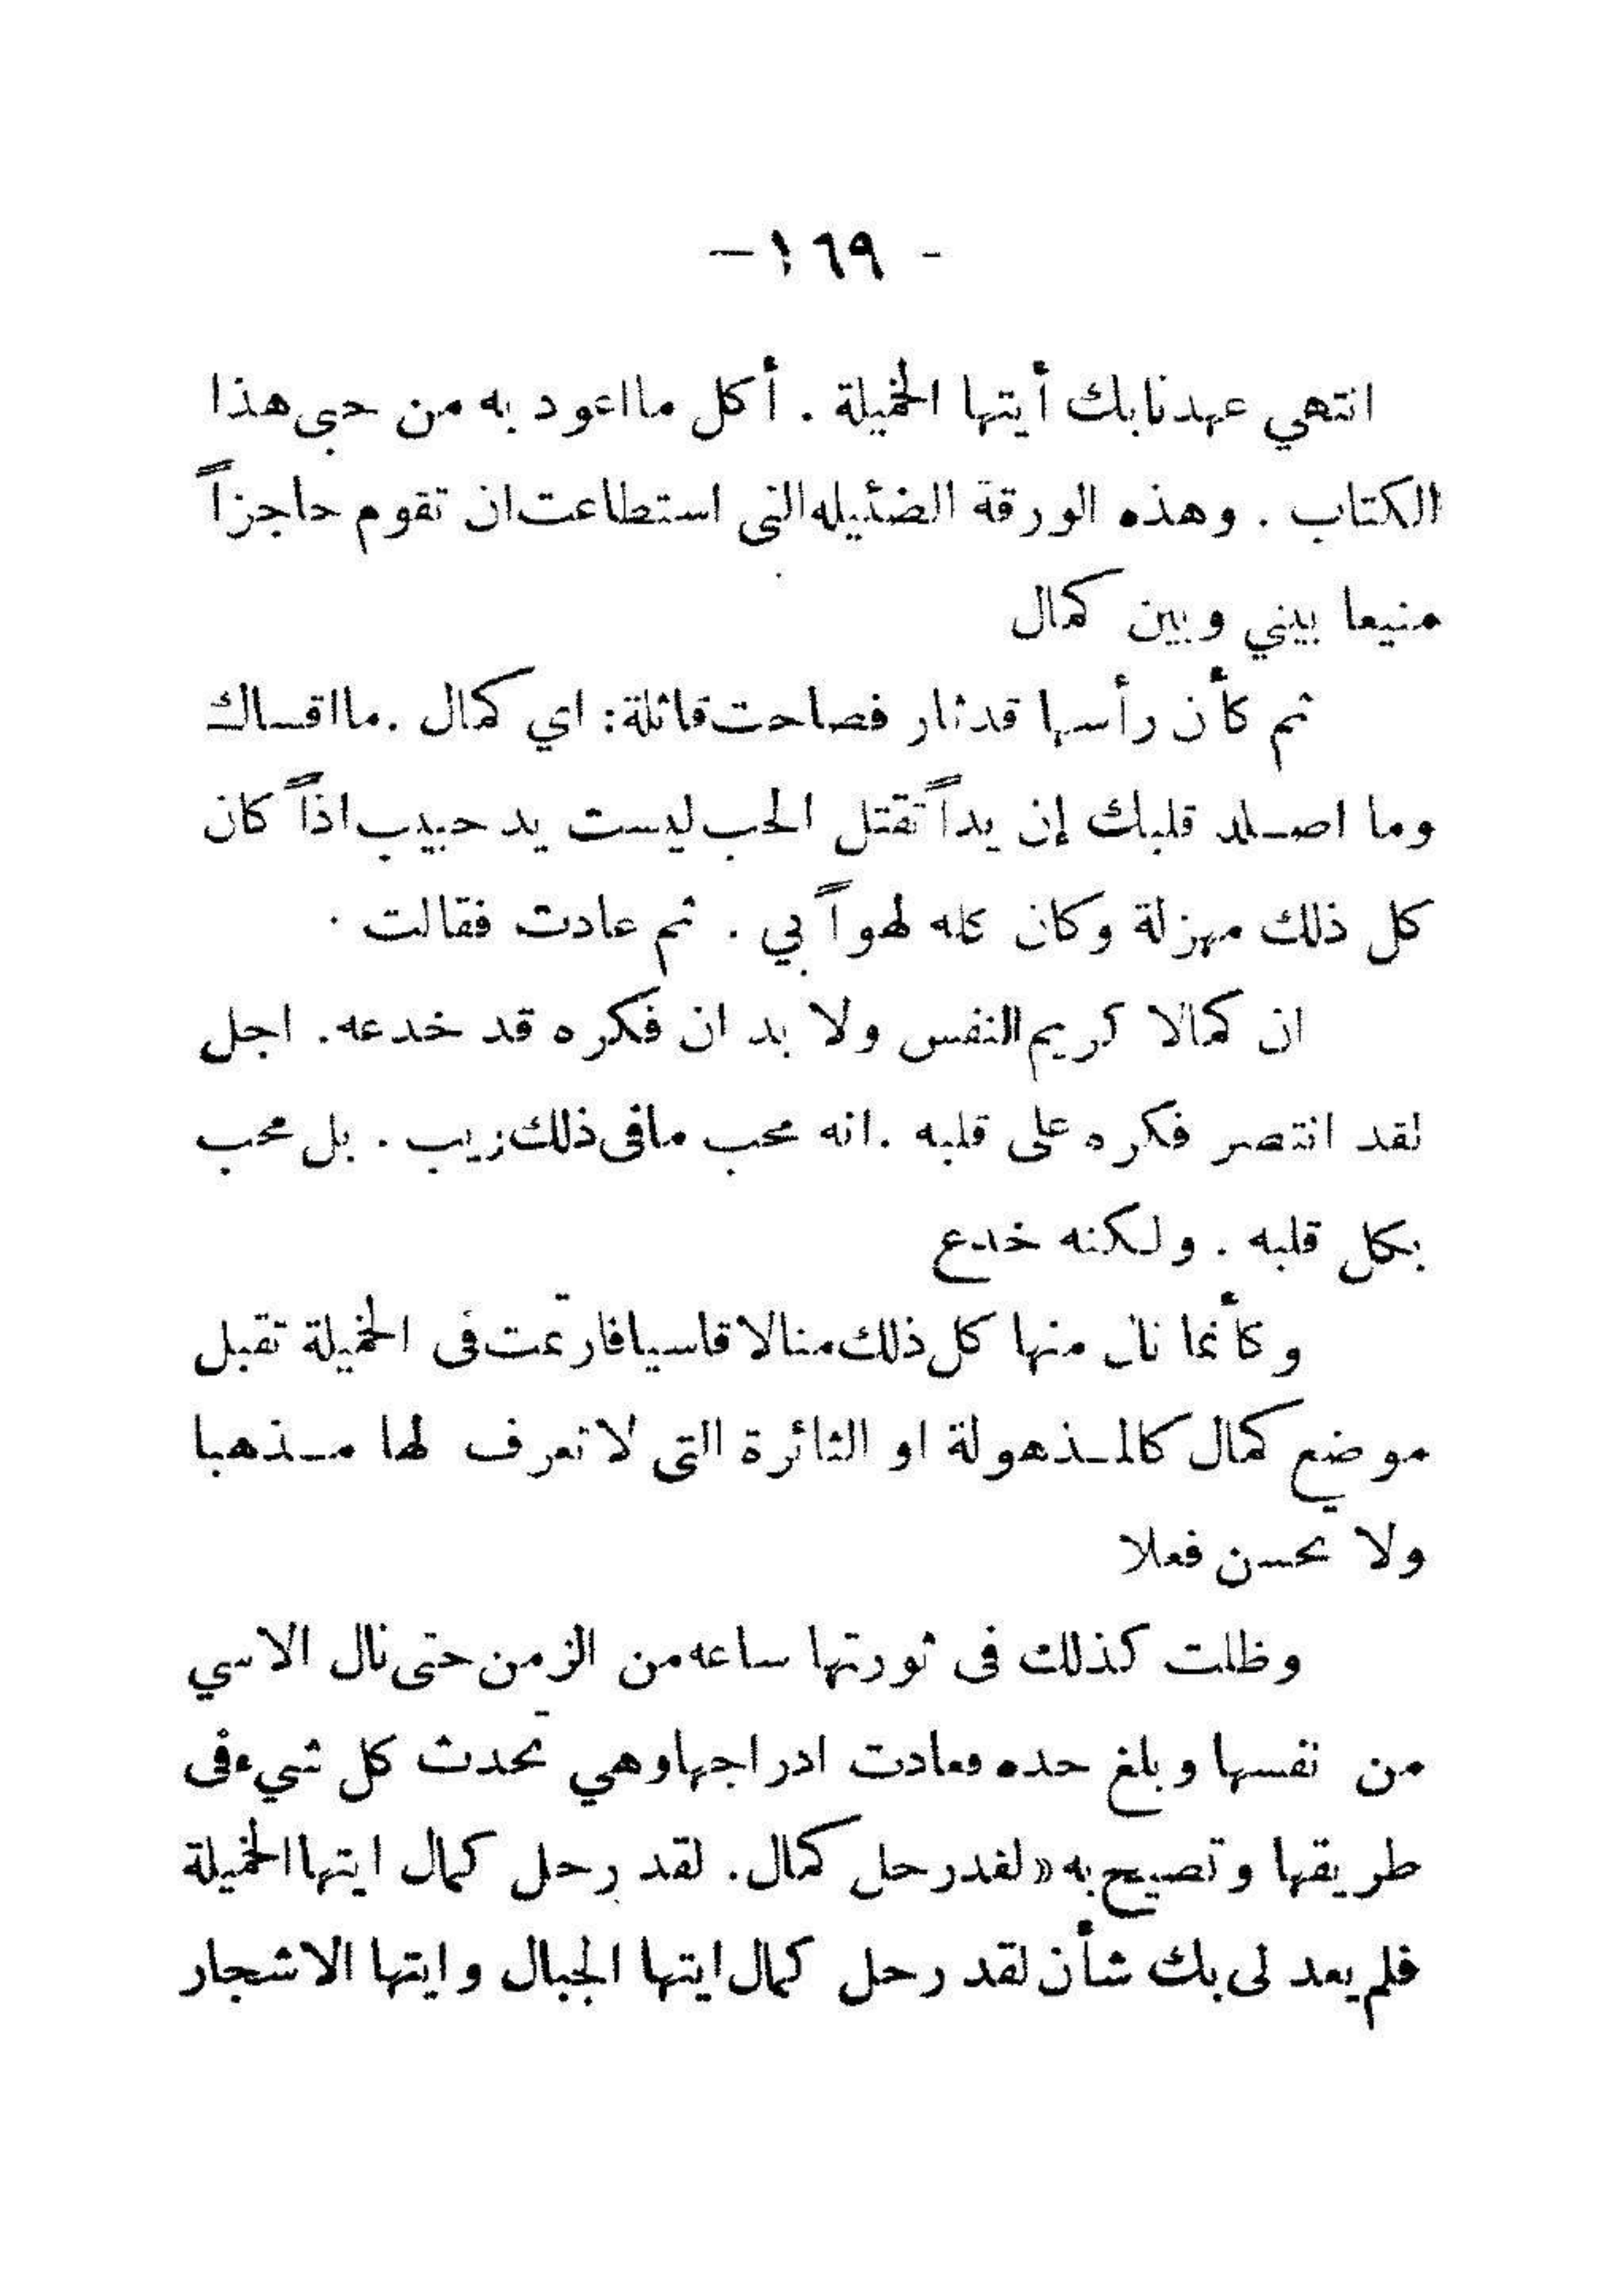 - ١٦٩ -
انتهي عهدنا بك أيتها الخميلة . أكل ما اعود به من حبى هذا
الكتاب . وهذه الورقة الضئيله التى استطاعت ان تقوم حاجزاً
منيعا بيني وبين كمال
ثم كأن رأسها قد ثار فصاحت قائلة : اي كمال . ما اقساك
وما اصلد قلبك إن يداً تقتل الحب ليست يد حبيب اذاً كان
كل ذلك مهزلة وكان كله لهواً بي . ثم عادت فقالت .
ان كمالا كريم النفس ولا بد ان فكره قد خدعه . اجل
لقد انتصر فكره على قلبه . انه محب ما فى ذلك ريب . بل محب
بكل قلبه . ولكنه خدع
وكأنما نال منها كل ذلك منالا قاسيا فارتمت فى الخميلة تقبل
موضع كمال كالمذهولة او الثائرة التى لا تعرف لها مذهبا
ولا تحسن فعلا
وظلت كذلك فى ثورتها ساعه من الزمن حتى نال الاسي
من نفسها وبلغ حده فعادت ادراجها وهي تحدث كل شيء فى
طريقها وتصيح به « لقد رحل كمال . لقد رحل كمال ايتها الخميلة
فلم يعد لى بك شأن لقد رحل كمال ايتها الجبال وايتها الاشجار